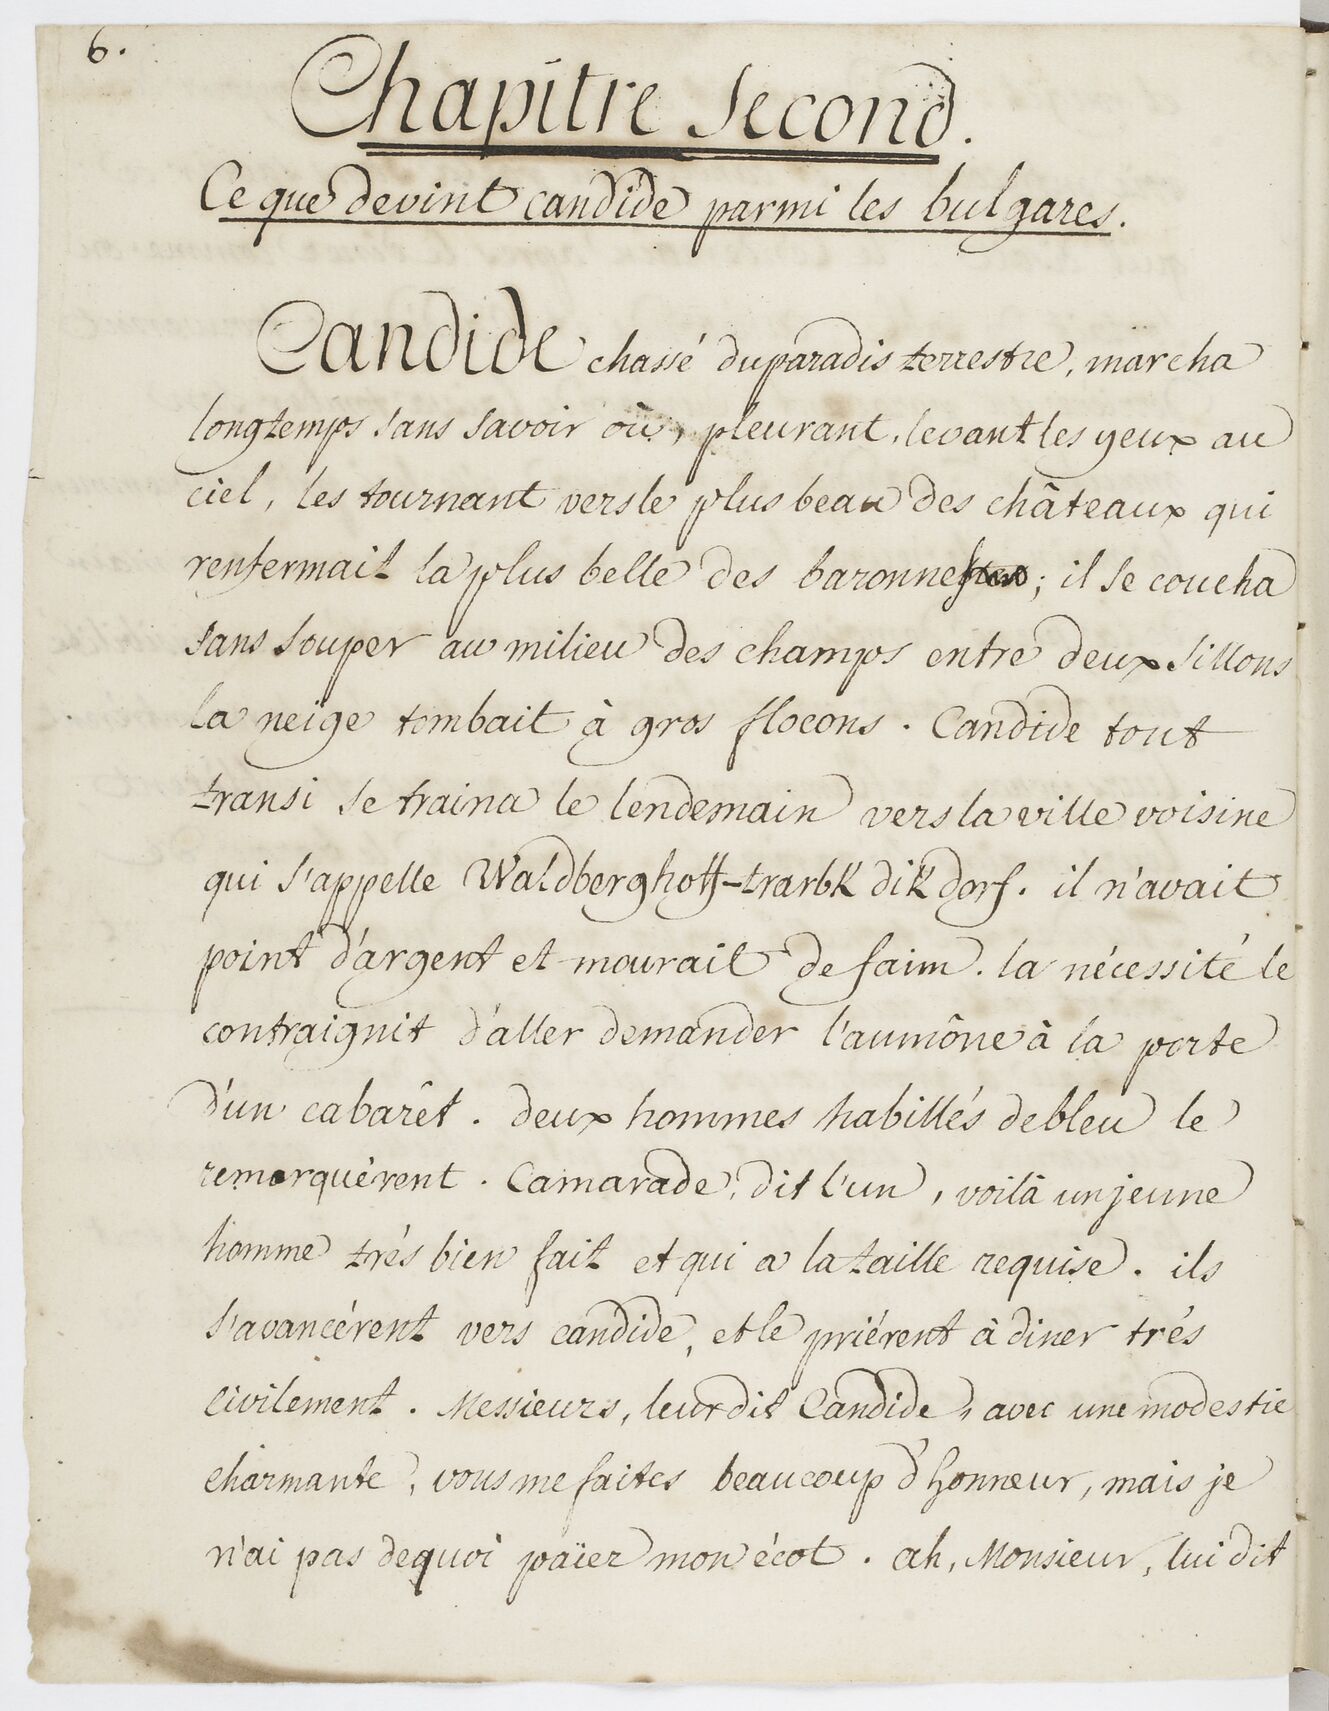 6.
Chapitre Second.
Ce que devint candide parmi les bulgares.
Candide chassé du paradis terrestre, marcha
longtemps sans savoir où, pleurant, levant les yeux au
ciel, les tournant vers le plus beau des châteaux qui
renfermait la plus belle des baronnettes; il se coucha
sans souper au milieu des champs entre deux sillons
la neige tombait à gros flocons. Candide tout
transi se traina le lendemain vers la ville voisine
qui s'appelle Waldberghoff-trarbk dikdorf. il n'avait
point d'argent et mourait de faim. la nécessité le
contraignit d'aller demander l'aumône à la porte
d'un cabarêt. deux hommes habillés de bleu le
remarquèrent. Camarade, dit l'un, voilà un jeune
homme trés bien fait et qui a la taille requise. ils
s'avancérent vers candide, et le priérent à diner trés
civilement. Messieurs, leur dit Candide, avec une modestie
charmante, vous me faites beaucoup d'honneur, mais je
n'ai pas dequoi païer mon écot. ah, Monsieur, lui dit